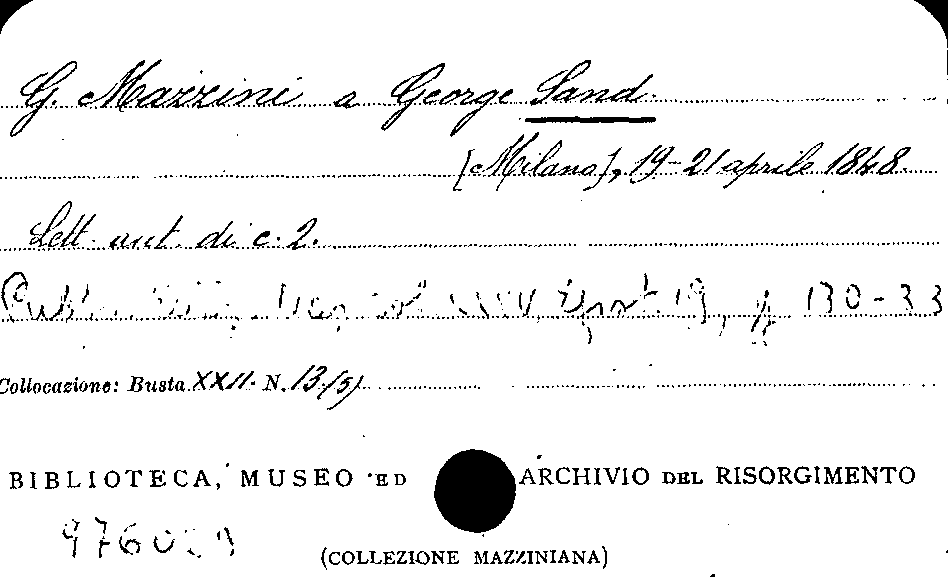 G. Mazzini a George Sand.
[Milano], 19-21 aprile 1848.
Lett. aut. di c. 2.
19, p. 130-33
Collocazione: Busta XXII. N. 13/(5)
BIBLIOTECA, MUSEO ED ARCHIVIO DEL RISORGIMENTO
(COLLEZIONE MAZZINIANA)